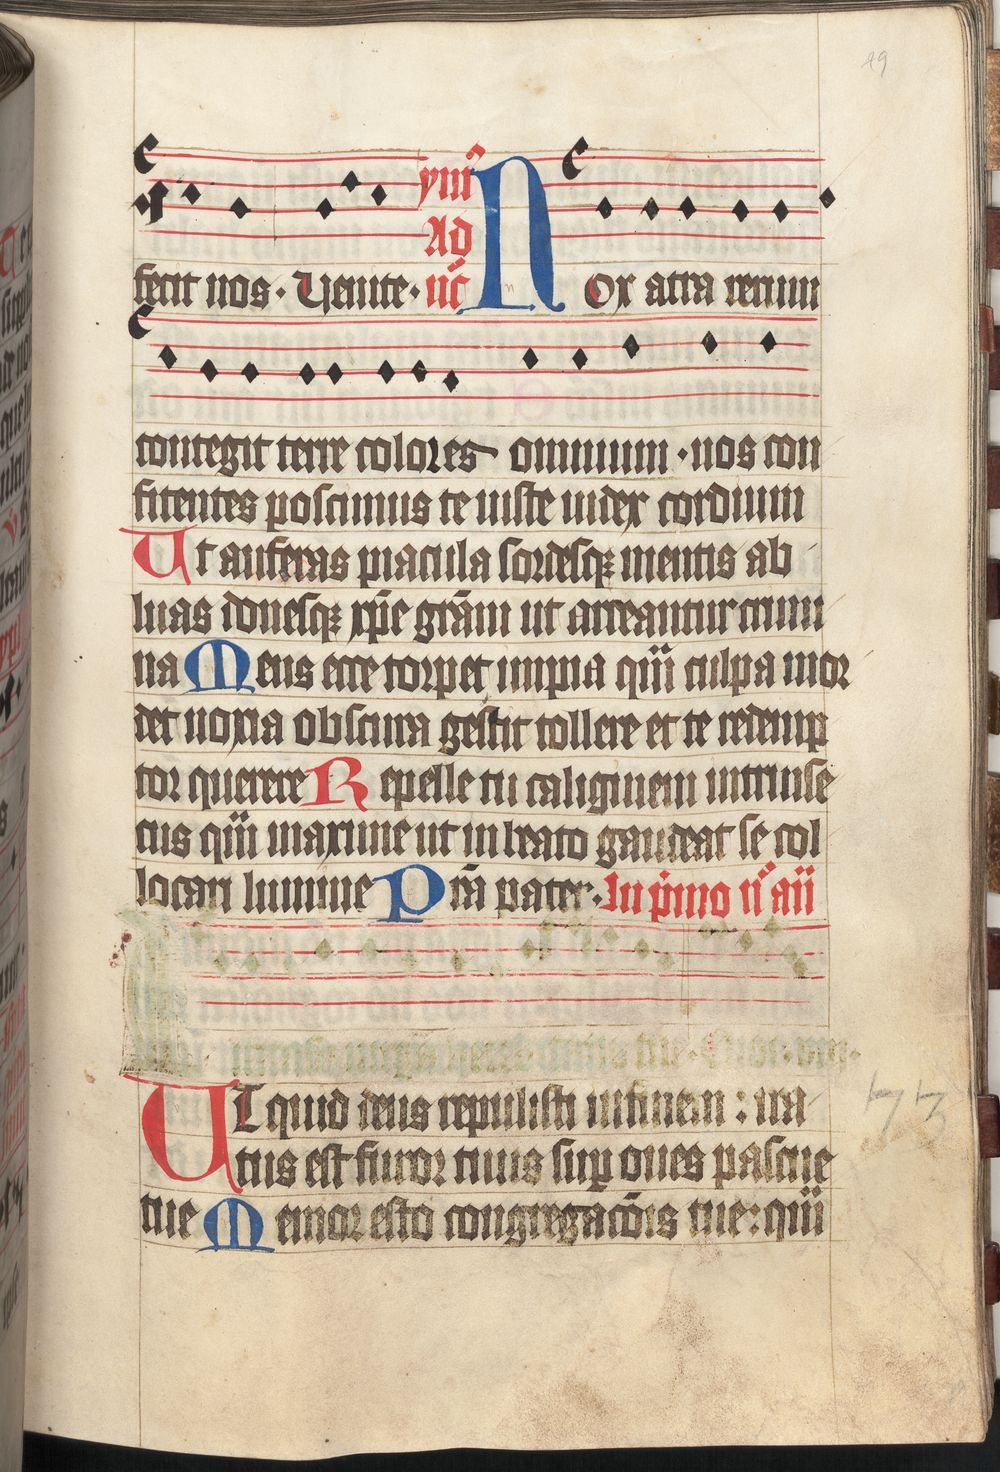 49
ymn9
Ad
nc
fecit nos · Venite · Nox atra rerum
contegit terre colores omnium · nos con
fitentes poscimus te iuste iudex cordium
Ut auferas piacula sordesq; mentis ab
luas donesq; xp̄e grām ut arceantur crimi
na Mens ecce torpet impia qm̄ culpa mor
det noxia obscura gestit tollere et te redemp
tor querere Repelle tu caliginem intrinse
cus qm̄ maxime ut in beato gaudeat se col
locari lumine Pr̄a pater · In p̄mo n̄ añ
Ut quid deus repulisti in finem : ira
tus est furor tuus sup̱ oues pascue
tue Memor esto congregacōis tue : qm̄
73